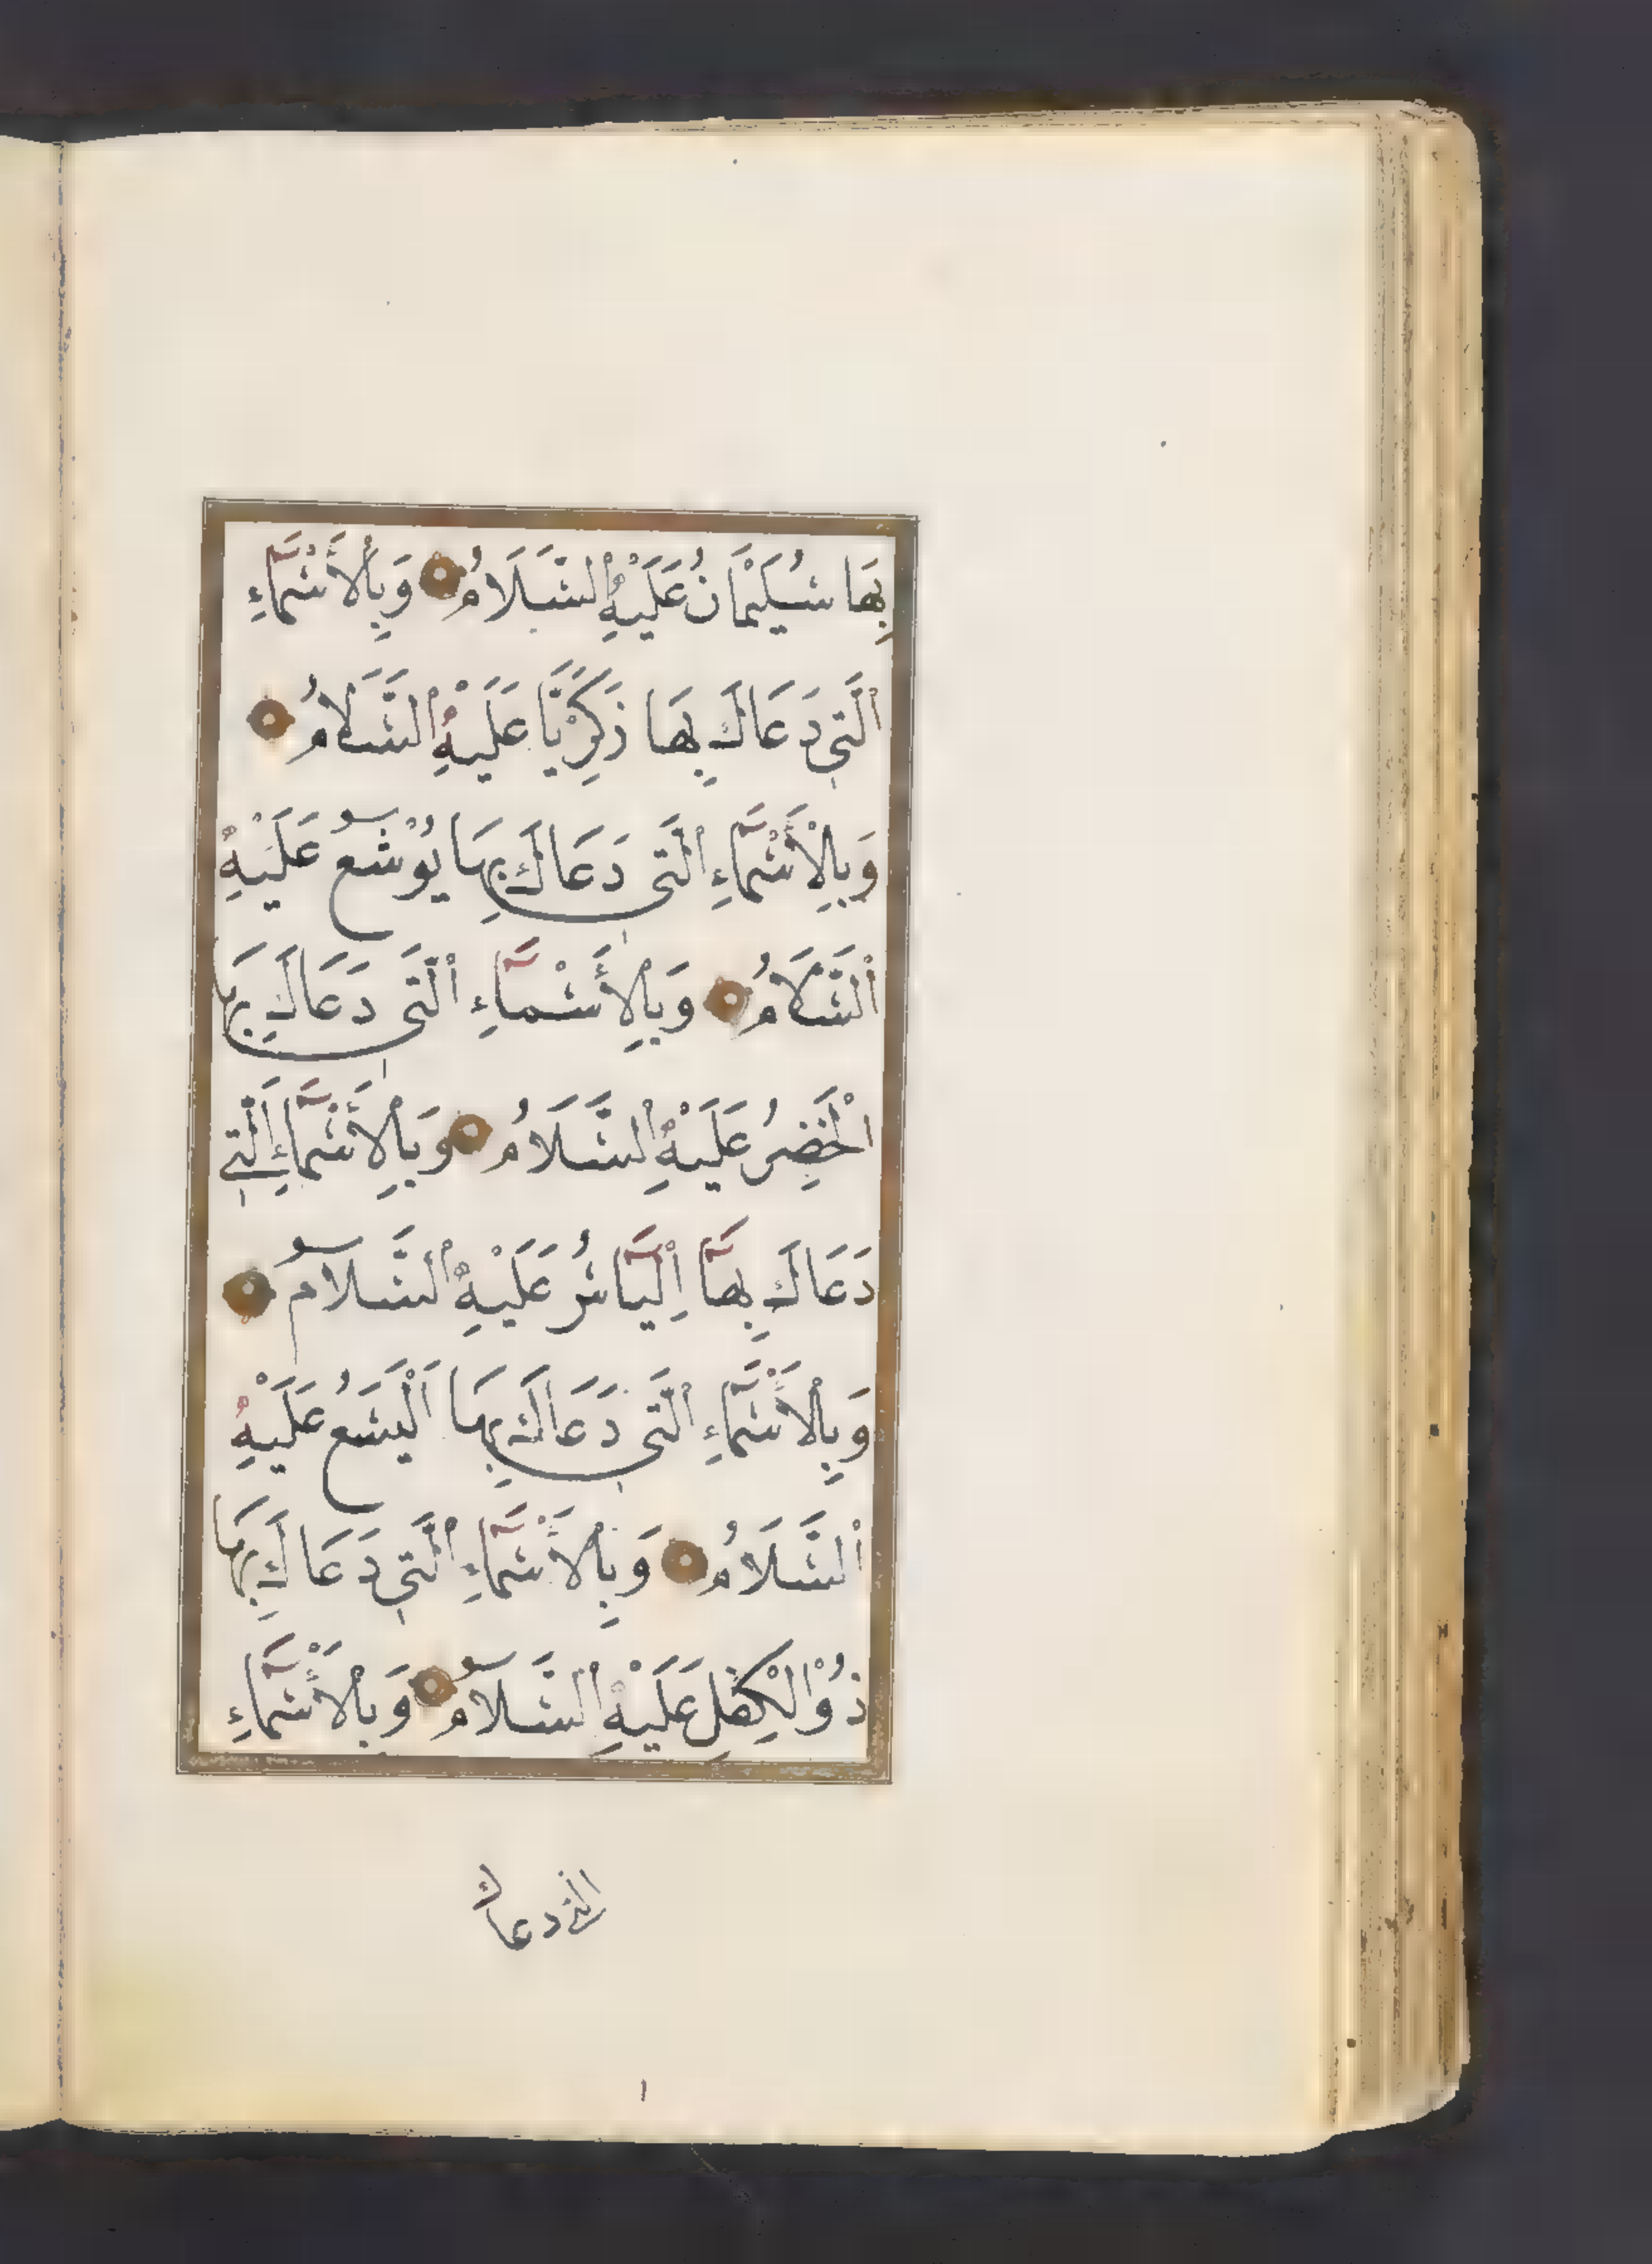 بِهَا سُلَيْمَانُ عَلَيْهِ السَّلَامُ وَبِالْأَسْمَاءِ
الَّتِي دَعَاكَ بِهَا زَكَرِيَّا عَلَيْهِ السَّلَامُ
وَبِالْأَسْمَاءِ الَّتِي دَعَاكَ بِهَا يُوشَعُ عَلَيْهِ
السَّلَامُ وَبِالْأَسْمَاءِ الَّتِي دَعَاكَ بِهَا
الْخَضِرُ عَلَيْهِ السَّلَامُ وَبِالْأَسْمَاءِ الَّتِي
دَعَاكَ بِهَا إِلْيَاسُ عَلَيْهِ السَّلَامُ
وَبِالْأَسْمَاءِ الَّتِي دَعَاكَ بِهَا الْيَسَعُ عَلَيْهِ
السَّلَامُ وَبِالْأَسْمَاءِ الَّتِي دَعَاكَ بِهَا
ذُو الْكِفْلِ عَلَيْهِ السَّلَامُ وَبِالْأَسْمَاءِ
التي دعاك